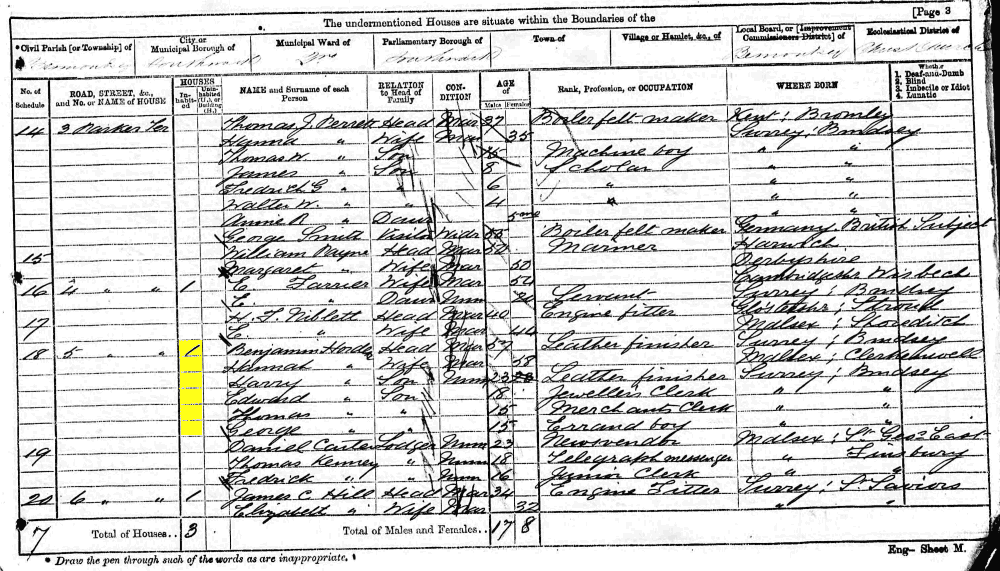 [Page 3
The undermentioned Houses are situate within the Boundaries of the
*Civil Parish [or Township] of City or Municipal Borough of Municipal Ward of Parliamentary Borough of Town of Village or Hamlet, &c., of Local Board, or [Improvement Commissioners District] of Ecclesiastical District of
Southwark Southwark Bermondsey
No. of Schedule ROAD, STREET, &c., and No. or NAME of HOUSE HOUSES Inhabited Uninhabited (U.), or Building (B.) NAME and Surname of each Person RELATION to Head of Family CONDITION AGE of Males Females Rank, Profession, or OCCUPATION WHERE BORN Whether 1. Deaf-and-Dumb 2. Blind 3. Imbecile or Idiot 4. Lunatic
14 3 Parker Ter Thomas J. Perrett Head Mar 37 Boiler felt maker Kent; Bromley
Hanna " Wife Mar 35 Surrey; Bmdsey
Thomas W. " Son Machine boy " "
James " Son 8 Scholar " "
Fredrich G " " 6 " " "
Walter W. " " 4 " " "
Annie R " Daur 5 mo " "
George Smith Visitor Widr Boiler felt maker Germany, British Subject
15 William Payne Head Mar 50 Marmer Harwich
Margaret " Wife Mar 50 Derbyshire
16 4 " " 1 E. Farrier Wife Mar 54 Cambridgeshr Wisbech
E. " Daur Unm Servant Surrey; Bmdsey
17 H. F. Niblett Head Mar 40 Engine fitter Glos'shr; Stroud
E " Wife Mar 44 Mdlsex; Shoreditch
18 5 " " 1 Benjamin Horder Head Mar 57 Leather finisher Surrey; Bmdsey
Hannah " Wife Mar 58 Mdlsex; Clerkenwell
Harry " Son Unm 23 Leather finisher Surrey; Bmdsey
Edward " Son 18 Jewellers Clerk " "
Thomas " " 15 Merchants Clerk " "
George " 15 Errand boy " "
19 Daniel Carter Lodger Unm 23 Newsvendor Mdlsex; St Geo East
Thomas Kenney " Unm 18 Telegraph messenger " Finsbury
Fredrick " " Unm 16 Junior Clerk " "
20 6 " " 1 James C. Hill Head Mar 34 Engine Fitter Surrey; St Saviors
Elizabeth " Wife Mar 32 " "
7 Total of Houses.. 3 Total of Males and Females.. 17 8
* Draw the pen through such of the words as are inappropriate. Eng— Sheet M.